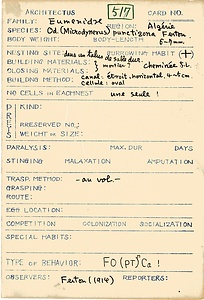 ARCHITECTUS 517 CARD NO.
FAMILY: Eumenidæ REGION: Algérie
SPECIES: Od. (Microdynerus) punctizona Ferton
BODY WEIGHT: BODY-LENGTH 5-9mm
NESTING SITE: dans un talus de sable dur. BURROWING HABIT (+)
BUILDING MATERIALS: } mortier? cheminée
CLOSING MATERIALS:
BUILDING METHOD: canal: étroit, horizontal, 4-5cm.
cellule: oval
NO CELLS IN EACH NEST une seule!
PREYS KIND:
PRESERVED NO.:
WEIGHT OR SIZE:
PARALYSIS: MAX. DUR DAYS
STINGING MALAXATION AMPUTATION
TRANSP. METHOD: -au vol-
GRASPING:
ROUTE:
EGG LOCATION:
COMPETITION COLONIZATION SOCIALIZATION
SPECIAL HABITS:
TYPE OF BEHAVIOR: FO(PT)Ca!
OBSERVERS: Ferton (1914) REPORTERS: